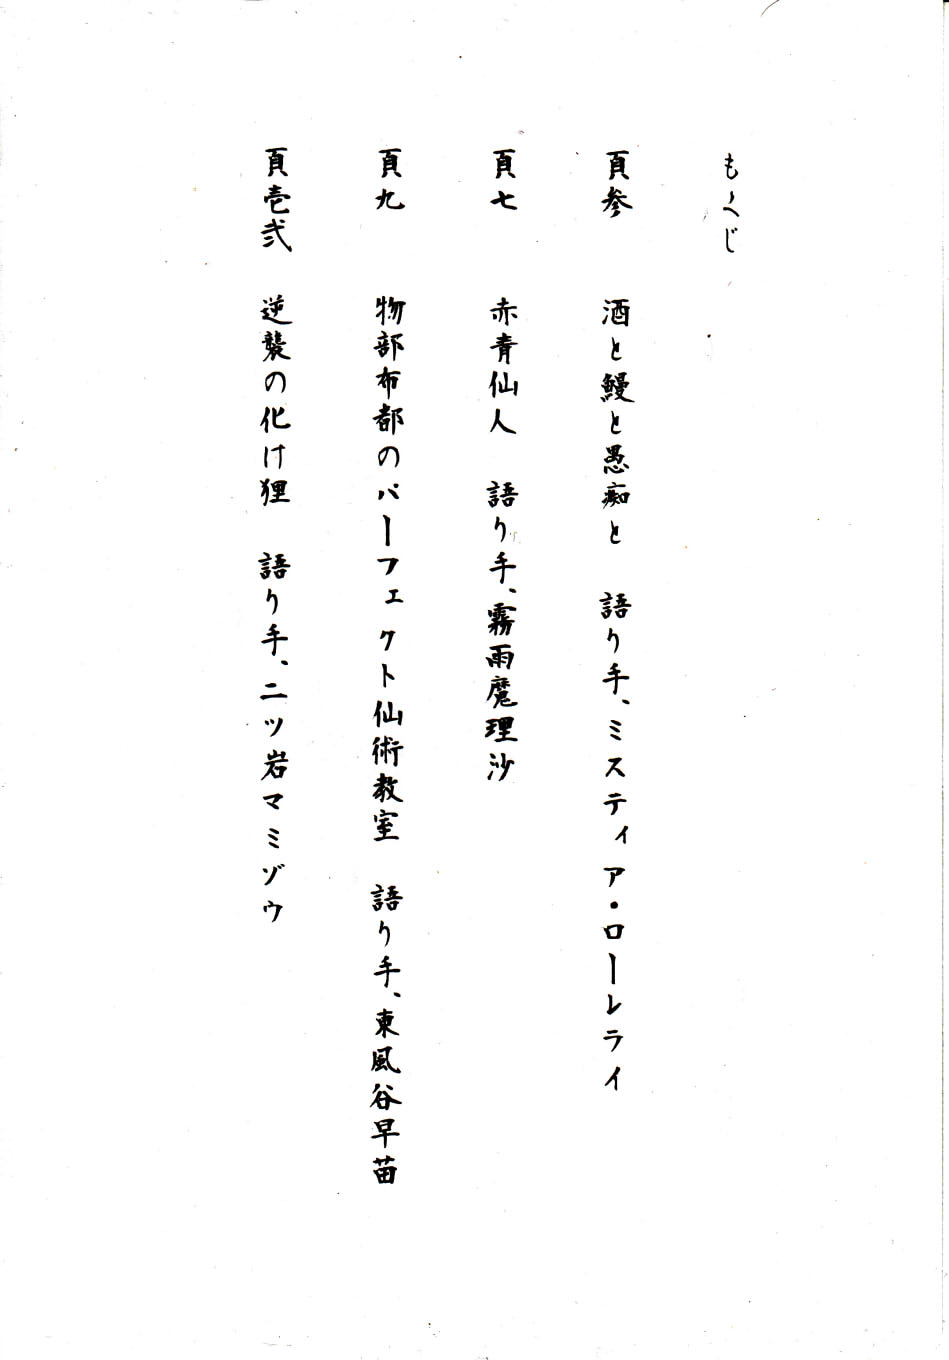 もくじ
頁参　酒と鰻と愚痴と　語り手、ミスティア・ローレライ
頁七　赤青仙人　語り手、霧雨魔理沙
頁九　物部布都のパーフェクト仙術教室　語り手、東風谷早苗
頁壱弐　逆襲の化け狸　語り手、二ツ岩マミゾウ